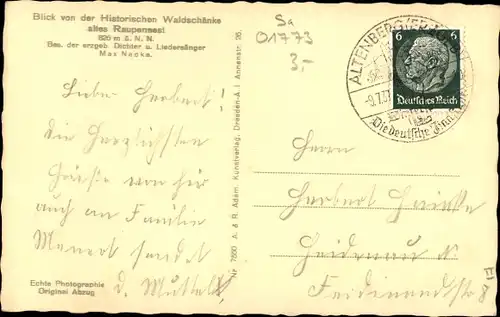 Blick von der Historischen Waldschänke
altes Raupennest
826 m ü. N. N.
Bes. der erzgeb. Dichter u. Liedersänger
Max Nacke.
Sa
01773
3,-
ALTENBERG (ERZGEB)
-9.7.37
Die deutsche
6 6
Deutsches Reich
Lieber Herbert!
Die herzlichsten
Grüße von hier
auch an Familie
Menert sendet
d. Mutter!
Echte Photographie
Original Abzug
Nr. 7600 A. & R. Adam, Kunstverlag, Dresden-A. I Annenstr. 26.
Herrn
Herbert
Heidenau
Ferdinandstr 8